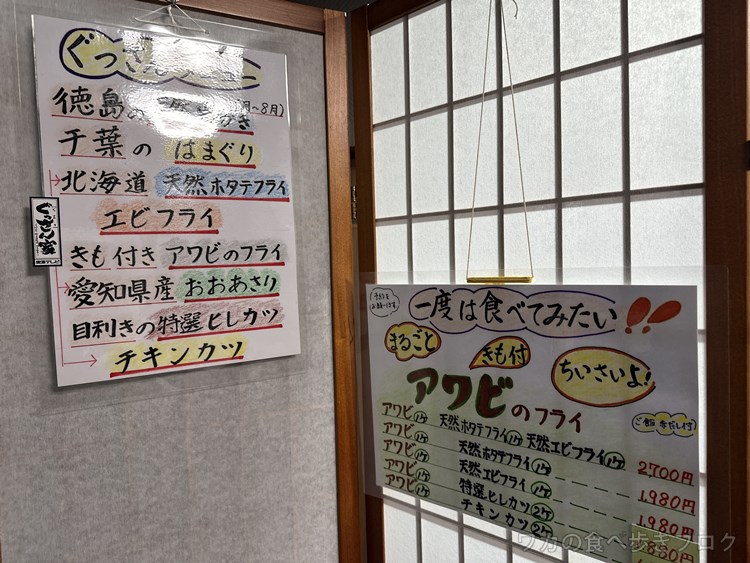 ぐっさん
徳島の
月～8月)
千葉の はまぐり
北海道 天然ホタテフライ
エビフライ
きも付き アワビのフライ
愛知県産 おおあさり
目利きの特選ヒレカツ
チキンカツ
ぐっさん家
東海テレビ
一度は食べてみたい!!
まるごと
きも付
ちいさいよ!
アワビのフライ
ご飯 赤だし付
アワビ1ケ 天然ホタテフライ1ケ 天然エビフライ1ケ 2,700円
アワビ1ケ 天然ホタテフライ1ケ 1,980円
アワビ1ケ 天然エビフライ1ケ 1,980円
アワビ1ケ 特選ヒレカツ2ケ
アワビ1ケ チキンカツ2ケ
ワカの食べ歩きブログ